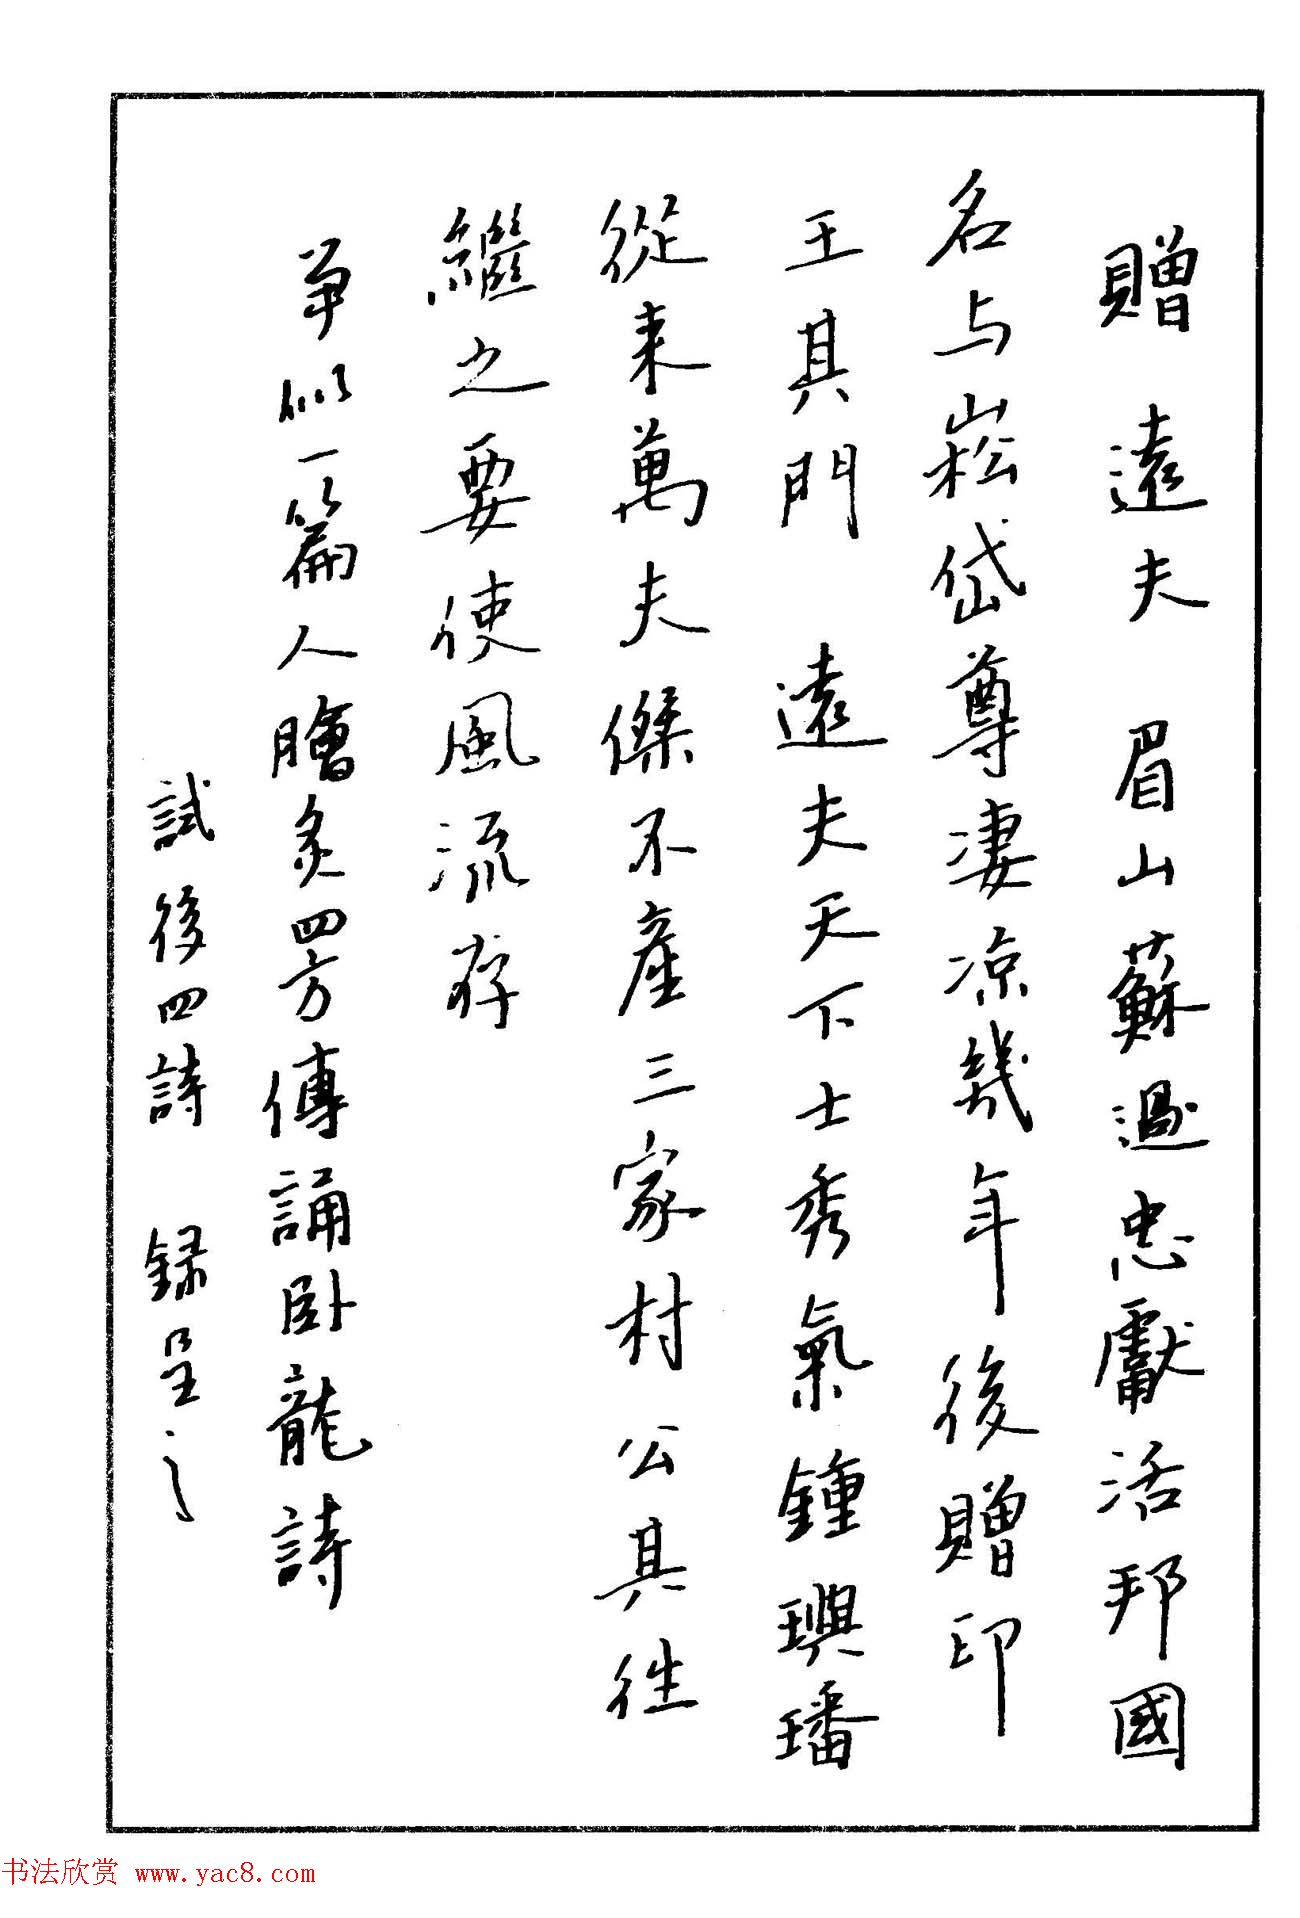 贈 遠夫 眉山蘇過 忠獻活邦國
名与崧岱尊淒凉幾年後贈印
王其門 遠夫天下士秀氣鍾璵璠
從来萬夫傑不產三家村公其往
繼之要使風流存
争似一篇人膾炙四方傳誦卧龍詩
試後四詩 録呈
书法欣赏 www.yac8.com